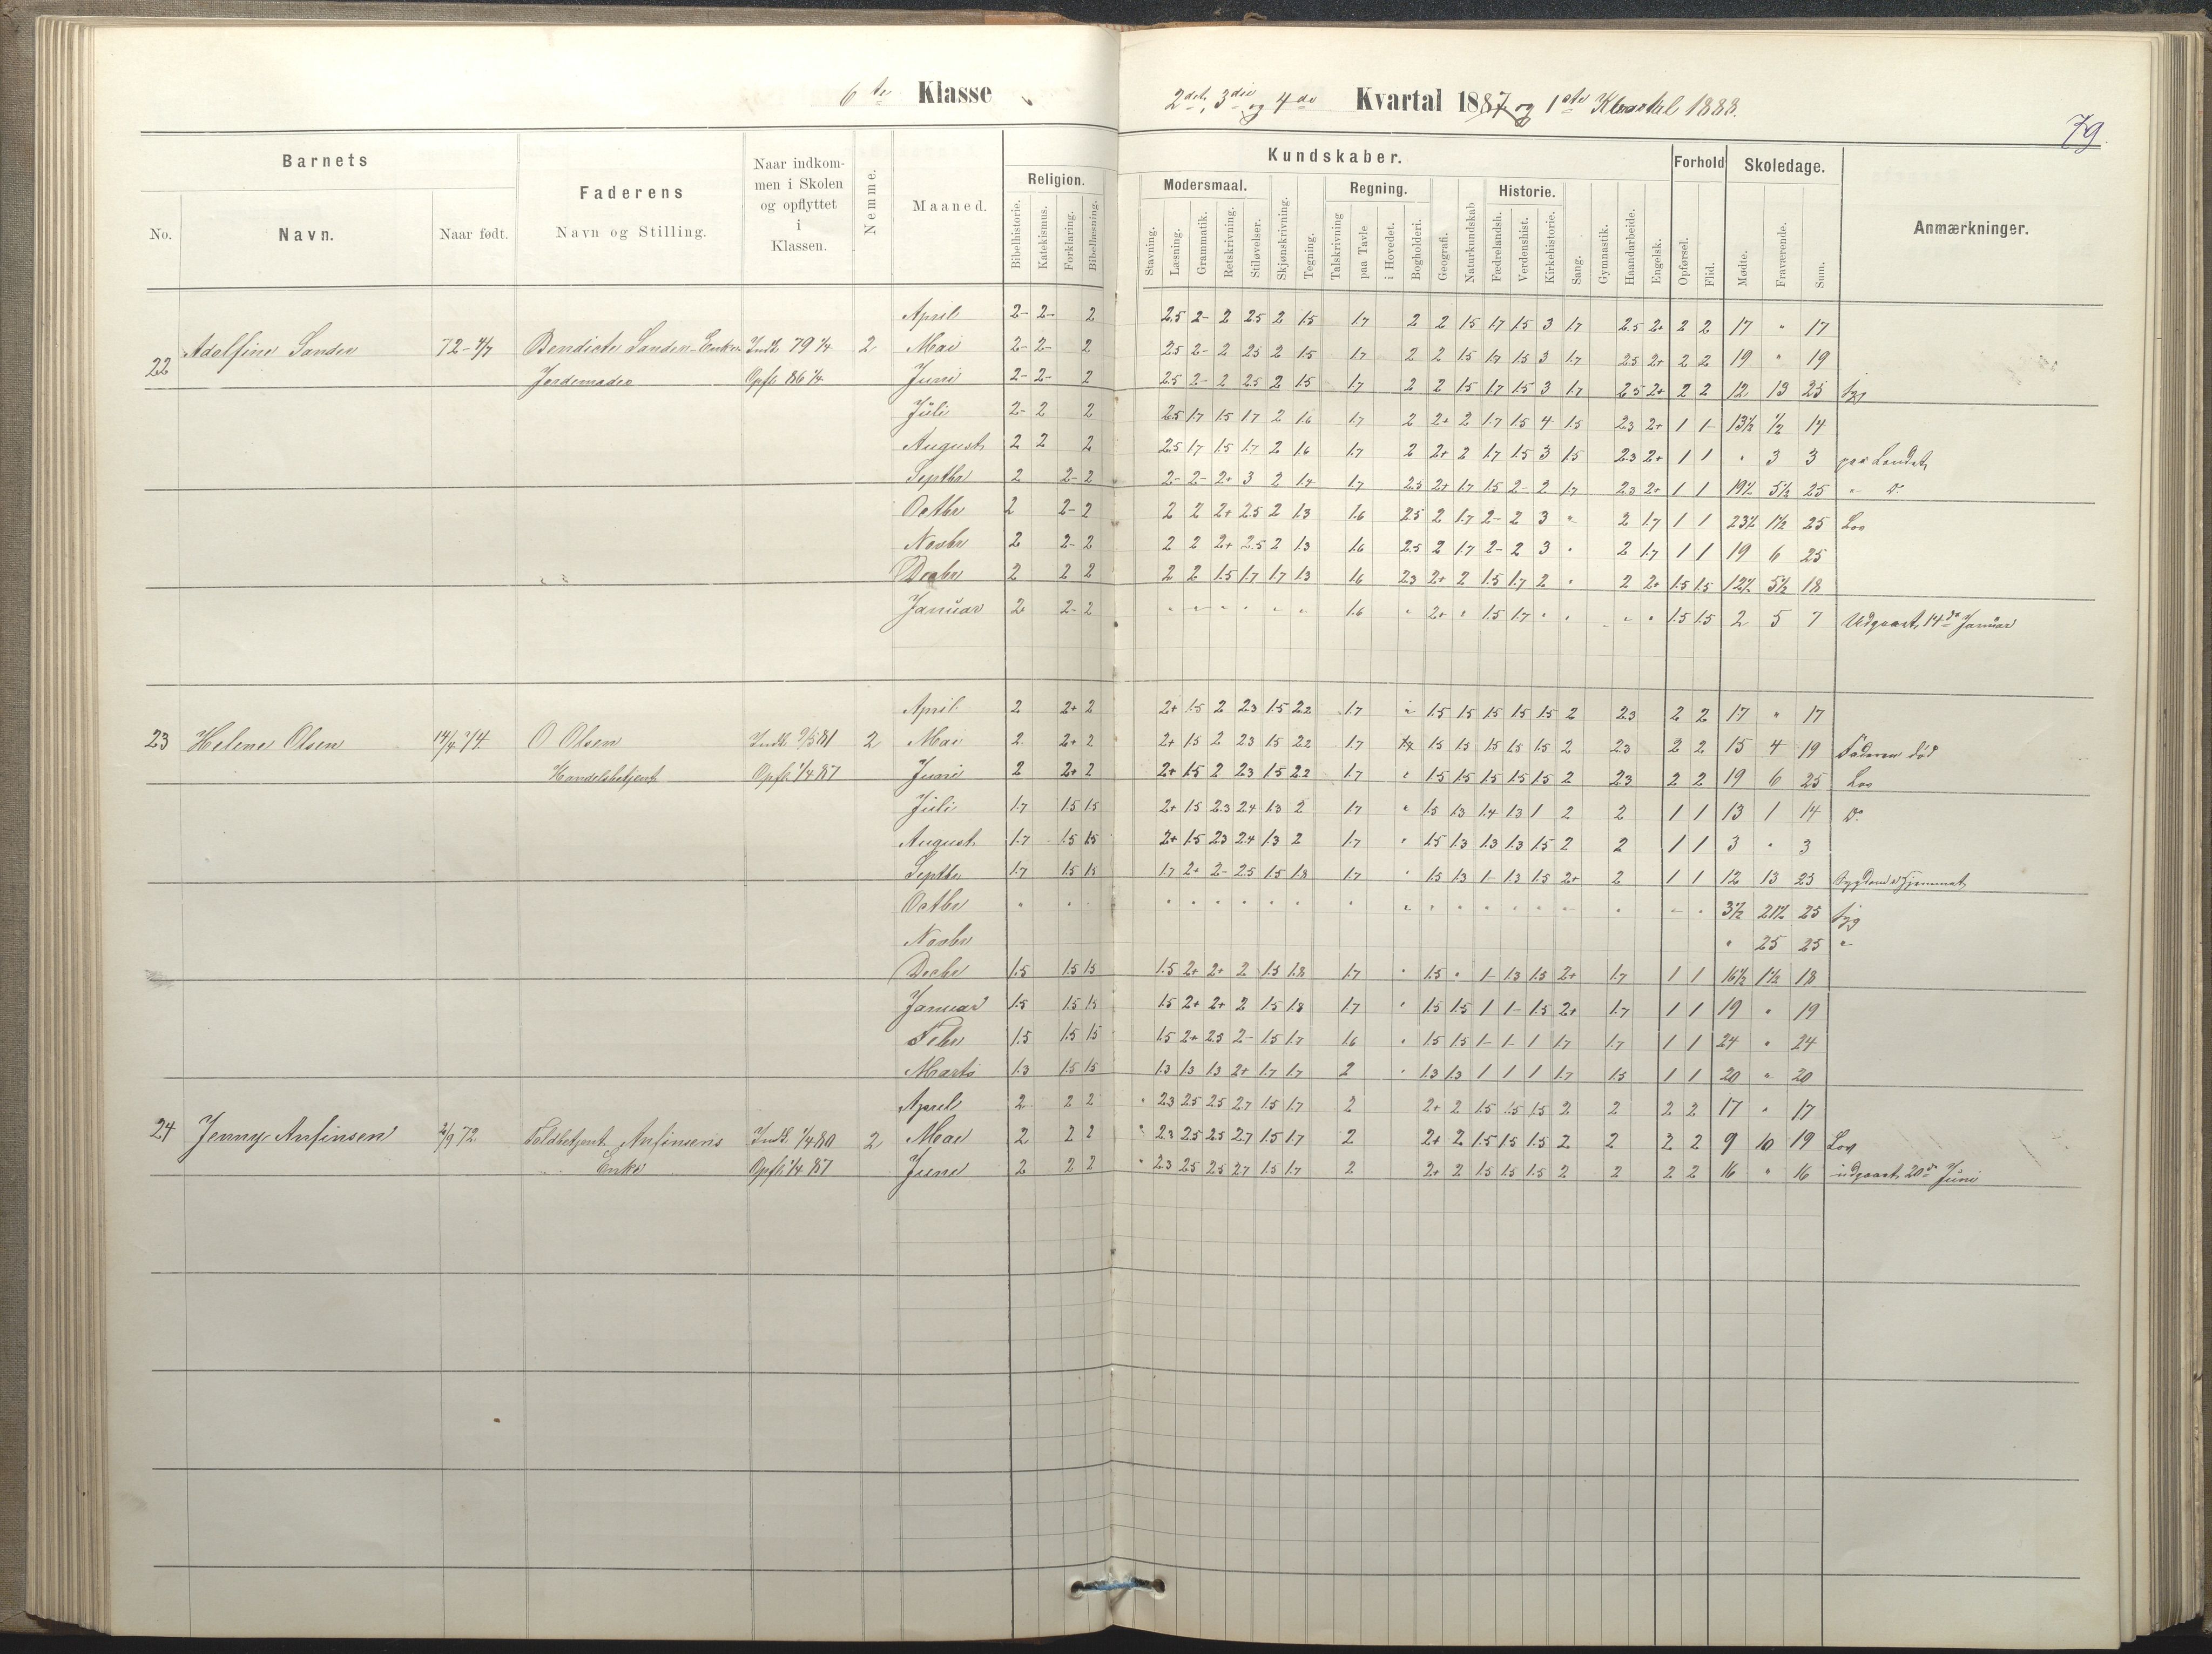 6te Klasse
2det, 3die og 4de Kvartal 1887 og 1ste Kvartal 1888.
79.
Barnets
No.
Navn.
Naar født.
Faderens
Navn og Stilling.
Naar indkom-
men i Skolen
og opflyttet
i
Klassen.
Nemme.
Maaned.
Kundskaber.
Religion.
Bibelhistorie.
Katekismus.
Forklaring.
Bibellæsning.
Modersmaal.
Stavning.
Læsning.
Grammatik.
Retskrivning.
Stiløvelser.
Skjønskrivning.
Tegning.
Regning.
Talskrivning
paa Tavle
i Hovedet.
Bogholderi.
Geografi.
Naturkundskab
Historie.
Fædrelandsh.
Verdenshist.
Kirkehistorie.
Sang.
Gymnastik.
Haandarbeide.
Engelsk.
Forhold
Opførsel.
Flid.
Skoledage.
Mødte.
Fraværende.
Sum.
Anmærkninger.
April 2- 2- 2 2.5 2- 2 2.5 2 1.5 1.7 2 2 1.5 1.7 1.5 3 1.7 2.5 2+ 2 2 17 " 17
22 Adolfine Sander 72-4/7 Bendicte Sander-Enke Indk. 79 1/4 2 Mai 2- 2- 2 2.5 2- 2 2.5 2 1.5 1.7 2 2 1.5 1.7 1.5 3 1.7 2.5 2+ 2 2 19 " 19
Jordemoder Opfl. 86 1/4 Juni 2- 2- 2 2.5 2- 2 2.5 2 1.5 1.7 2 2 1.5 1.7 1.5 3 1.7 2.5 2+ 2 2 12 13 25 syg
Juli 2- 2 2 2.5 1.7 1.5 1.7 2 1.6 1.7 2 2+ 2 1.7 1.5 4 1.5 2.3 2+ 1 1- 13½ ½ 14
August 2 2 2 2.5 1.7 1.5 1.7 2 1.6 1.7 2 2+ 2 1.7 1.5 3 1.5 2.3 2+ 1 1 " 3 3 paa Landet
Septbr 2 2- 2 2- 2- 2+ 3 2 1.4 1.7 2.5 2+ 1.7 1.5 2- 2 1.7 2.3 2+ 1 1 19½ 5½ 25 " Do
Octbr 2 2- 2 2 2 2+ 2.5 2 1.3 1.6 2.5 2 1.7 2- 2 3 " 2 1.7 1 1 23½ 1½ 25 Lov
Novbr 2 2- 2 2 2 2+ 2.5 2 1.3 1.6 2.5 2 1.7 2- 2 3 " 2 1.7 1 1 19 6 25
Decbr 2 2 2 2 2 1.5 1.7 1.7 1.3 1.6 2.3 2+ 2 1.5 1.7 2 " 2 2+ 1.5 1.5 12½ 5½ 18
Januar 2 2- 2 " " " " " " 1.6 " 2+ " 1.5 1.7 " " " " 1.5 1.5 2 5 7 Udgaaet, 14de Januar
April 2 2+ 2 2+ 1.5 2 2.3 1.5 2.2 1.7 " 1.5 1.5 1.5 1.5 1.5 2 2.3 2 2 17 " 17
23 Helene Olsen 14/4 74 O Olsen Indk. 9/5 81 2 Mai 2 2+ 2 2+ 1.5 2 2.3 1.5 2.2 1.7 1.5 1.5 1.5 1.5 1.5 2 2.3 2 2 15 4 19 Faderen død
Handelsbetjent Opfl. 1/4 87 Juni 2 2+ 2 2+ 1.5 2 2.3 1.5 2.2 1.7 " 1.5 1.5 1.5 1.5 1.5 2 2.3 2 2 19 6 25 Lov
Juli 1.7 1.5 1.5 2+ 1.5 2.3 2.4 1.3 2 1.7 " 1.5 1.3 1.4 1.3 1 2 2 1 1 13 1 14 Do
August 1.7 1.5 1.5 2+ 1.5 2.3 2.4 1.3 2 1.7 " 1.5 1.3 1.3 1.3 1.5 2 2 1 1 3 " 3
Septbr 1.7 1.5 1.5 1.7 2+ 2- 2.5 1.5 1.8 1.7 " 1.5 1.3 1- 1.3 1.5 2+ 2 1 1 12 13 25 Sygdom i Hjemmet
Octbr " " " " " " " " " " " " " " " " " " " 3½ 21½ 25 syg
Novbr " 25 25 "
Decbr 1.5 1.5 1.5 1.5 2+ 2+ 2 1.5 1.8 1.7 " 1.5 " 1- 1.3 1.5 2+ 1.7 1 1 16½ 1½ 18
Januar 1.5 1.5 1.5 1.5 2+ 2+ 2 1.5 1.8 1.7 " 1.5 1.5 1 1- 1.5 2+ 1.7 1 1 19 " 19
Febr 1.5 1.5 1.5 1.5 2+ 2.3 2- 1.5 1.7 1.6 " 1.5 1.5 1- 1- 1 1.7 1.7 1 1 24 " 24
Marts 1.3 1.5 1.5 1.3 1.3 1.3 2+ 1.7 1.7 2 " 1.3 1.3 1 1 1 1.7 1.5 1 1 20 " 20
April 2 2 2 " 2.3 2.5 2.5 2.7 1.5 1.7 2 2+ 2 1.5 1.5 1.5 2 2 2 2 17 " 17
24 Jenny Anfinsen 2/9 72 Toldbetjent Anfinsens Indk. 1/4 80 2 Mai 2 2 2 " 2.3 2.5 2.5 2.7 1.5 1.7 2 2+ 2 1.5 1.5 1.5 2 2 2 2 9 10 19 Lov
Enke Opfl. 1/4 87 Juni 2 2 2 " 2.3 2.5 2.5 2.7 1.5 1.7 2 2+ 2 1.5 1.5 1.5 2 2 2 2 16 " 16 udgaaet, 20de Juni